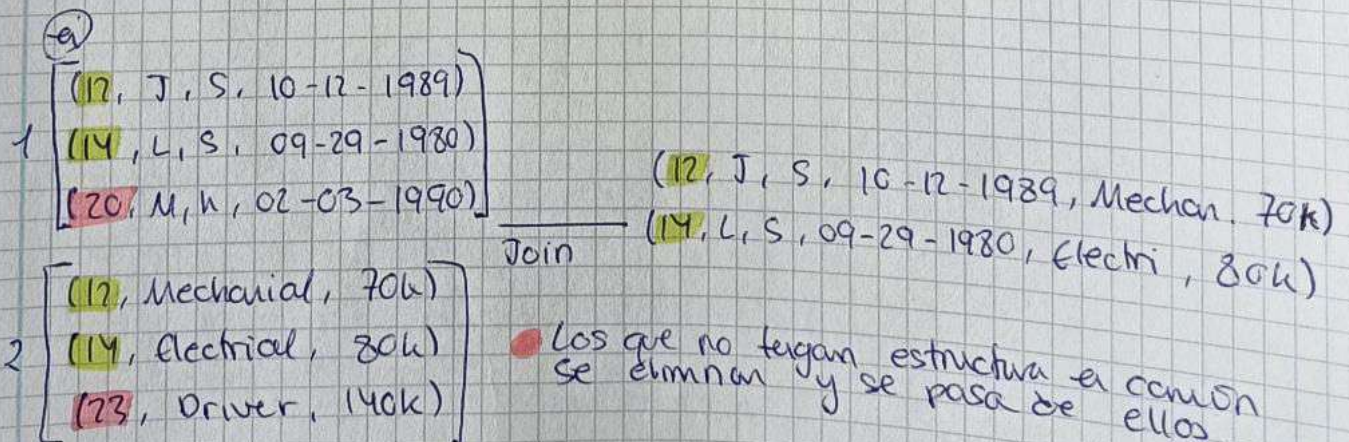 ej
(12, J, S, 10-12-1989)
1 (14, L, S, 09-29-1980)
(20, M, W, 02-03-1990)
Join
(12, J, S, 10-12-1989, Mechan. 70k)
(14, L, S, 09-29-1980, Electri, 80k)
(12, Mechanial, 70k)
2 (14, Electrial, 80k)
(23, Driver, 140k)
Los que no tengan estructura en común
se elimnan y se pasa de ellos